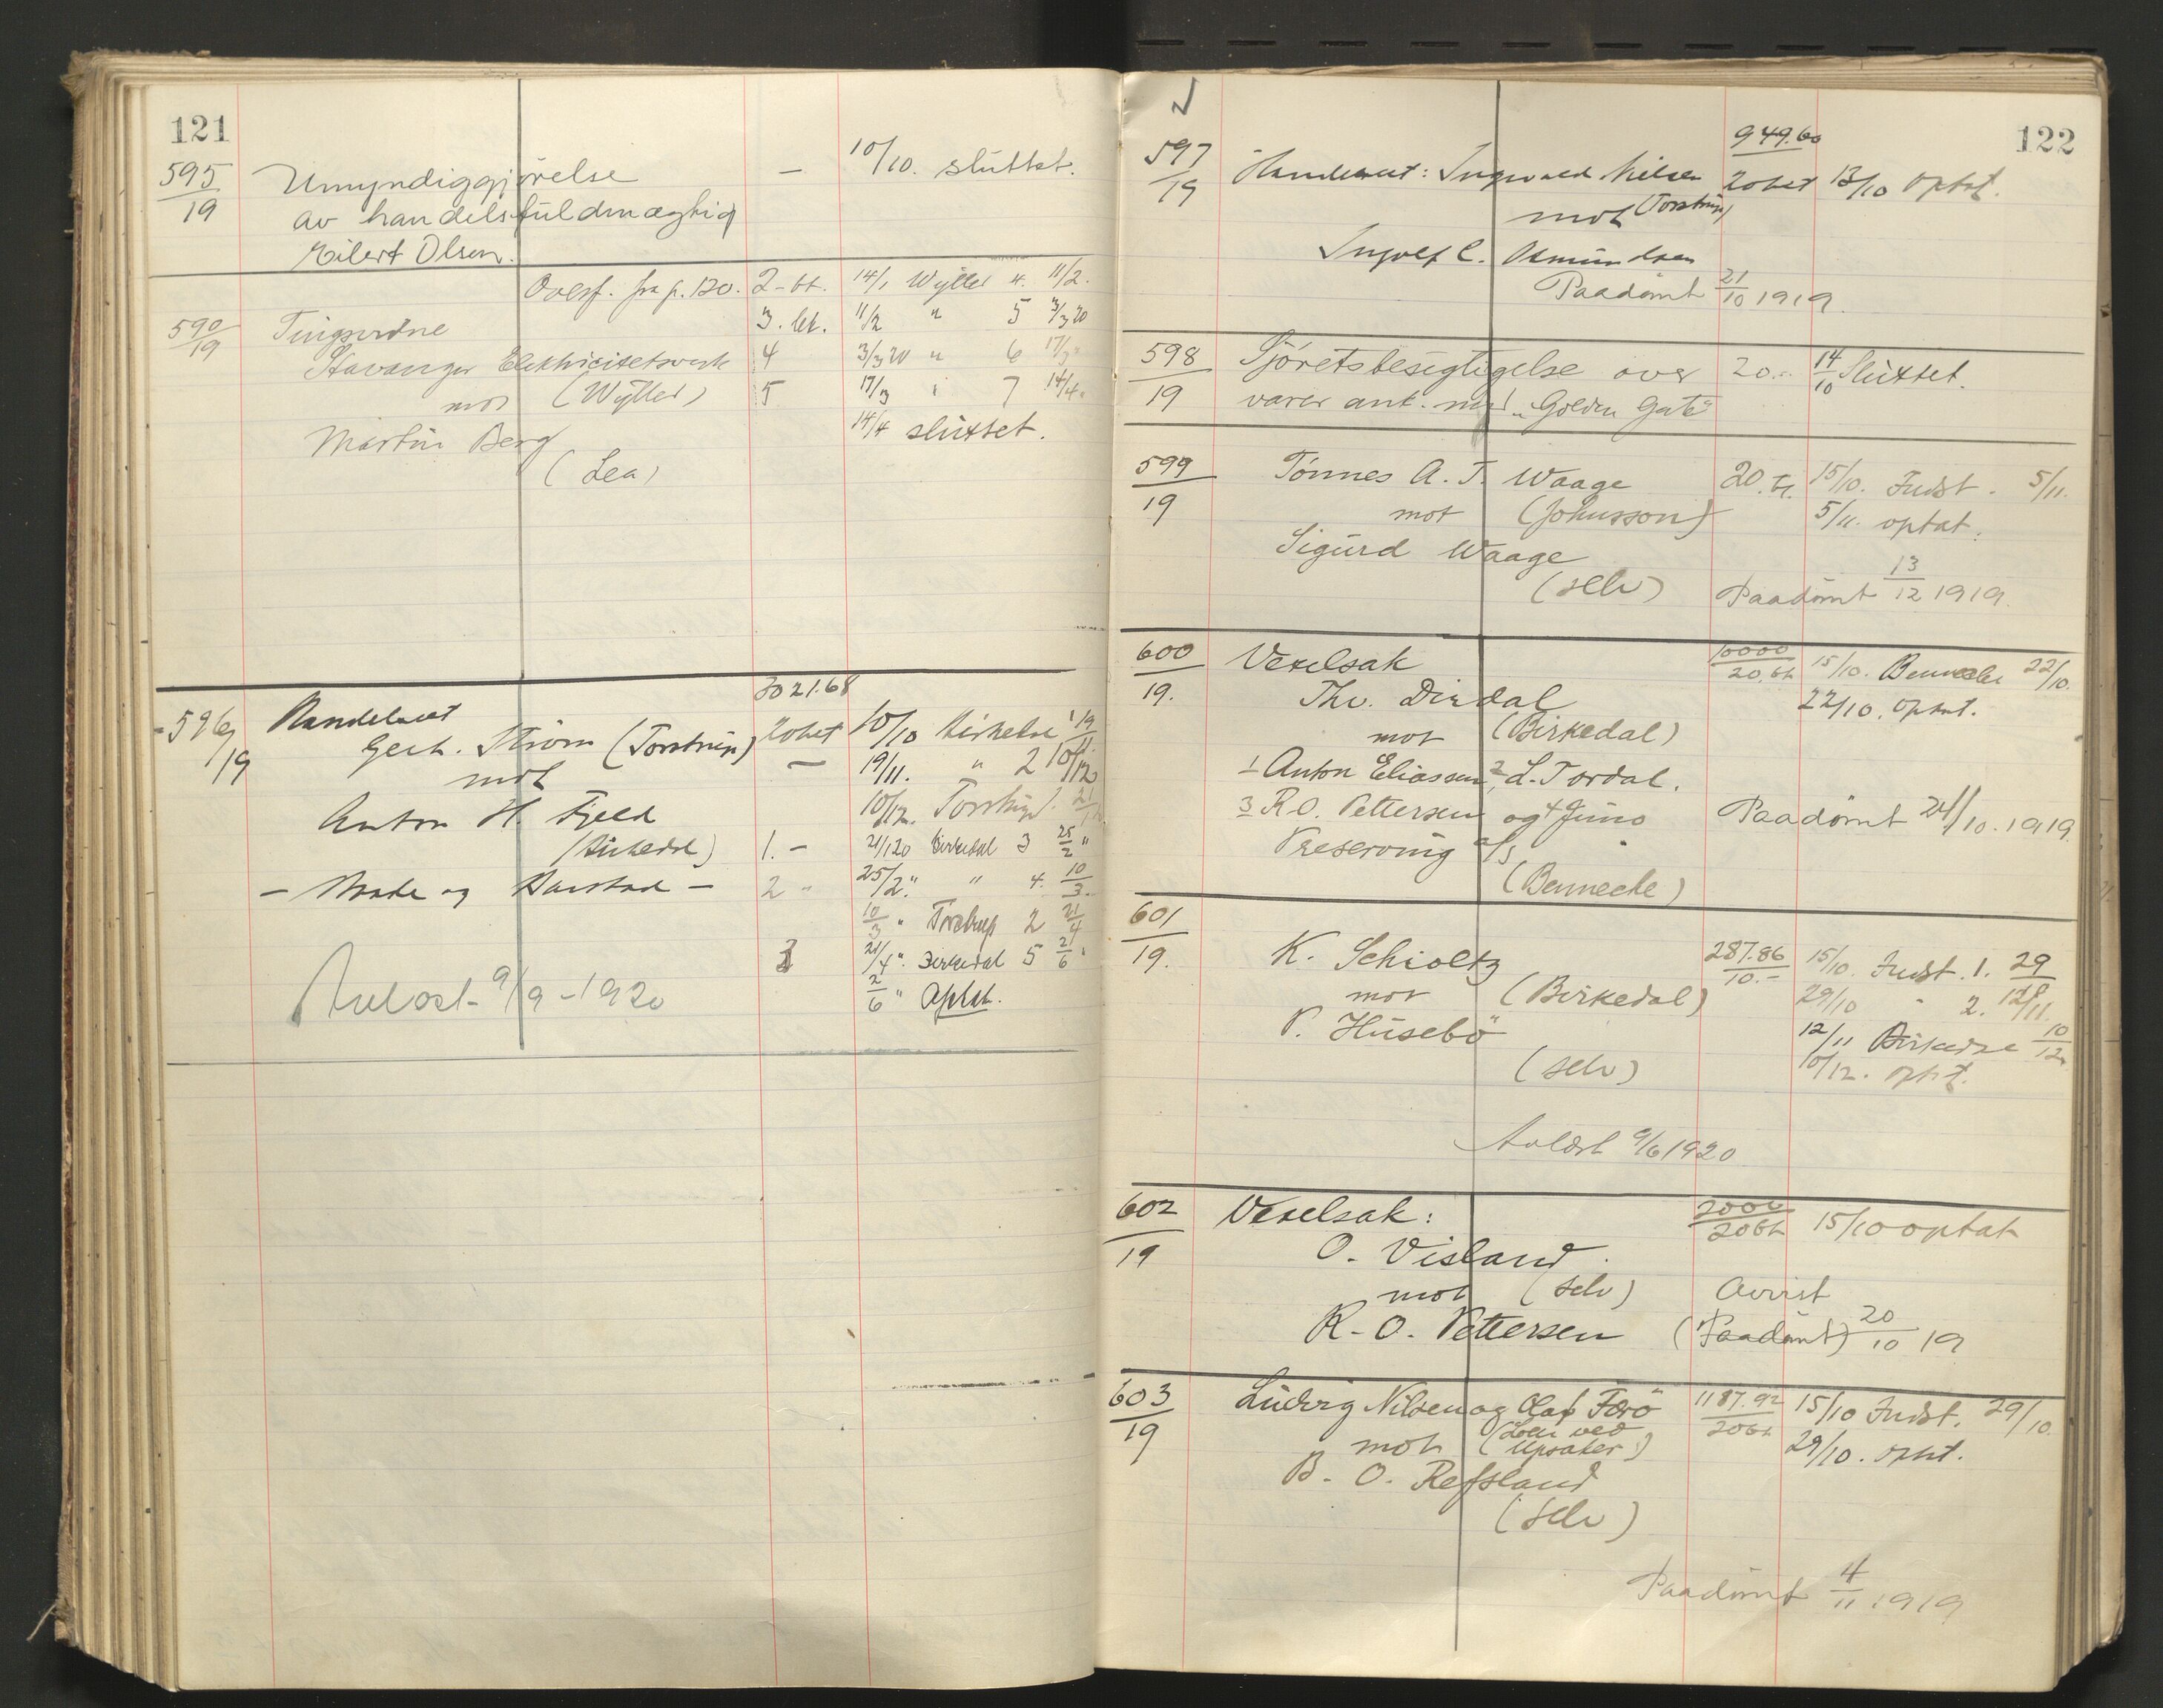 121
595/19 Umyndiggjörelse — 10/10. sluttet.
av handelsfuldmægtig
Eilert Olsen.
Overf. fra p. 120. 2 - bt. 14/1 Wyller 4. 11/2.
590/19 Tingsvidne 3. bt. 11/2 " 5 3/3 20
Stavanger Elektricitetsverk 4 3/3 20 " 6 17/3
mot (Wyller) 5 17/3 " 7 14/4.
Martin Berg 14/4 sluttet.
(Lea)
3021.68
596/19 Handelsret
Gerh. Ström (Torstrup) 20bet 10/10 Birkedal 1 19/11.
mot — 19/11. " 2 10/12
Anton H. Fjeld 10/12. Torstrup 1. 21/1
(Birkedal) 1. - 21/1 20 Birkedal 3 25/2 "
— Brake og Harstad — 2 " 25/2 " " 4. 10/3.
10/3 " Torstrup 2 21/4
3 21/4 " Birkedal 5 2/6 "
Avlæst 9/9 - 1920 2/6 " Optat.
122
949.60
597/19 Handelsret: Ingvald Nilsen 20bet 13/10 optat.
mot (Torstrup)
Ingolf C. Osmundsen
Paadømt 21/10 1919.
598/19 Sjöretsbesigtigelse over 20.- 14/10 Sluttet.
varer ank. med "Golden Gate"
599/19 Tönnes A. T. Waage 20. bt. 15/10. Indst. 5/11.
mot (Johnsson) 5/11. optat.
Sigurd Waage
(selv) Paadömt 13/12 1919.
600/19. Vexelsak 10000/20.bt 15/10. Bennecke 22/10.
Thv. Dirdal 22/10. optat.
mot (Birkedal)
1 Anton Eliassen, 2 L. Tordal.
3 R.O. Pettersen og 4 Juno Paadömt 24/10. 1919
Preserving A/S
(Bennecke)
601/19. K. Schioltz 287.86/10.- 15/10. Indst. 1. 29/10
mot (Birkedal) 29/10 " 2. 12/11.
P. Husebö 12/11 Birkedal 10/12
(selv) 10/12. optat.
Avlæst 9/6 1920
602/19 Vexelsak: 2000/20bt 15/10 optat
O. Visland
mot (selv) Avvist
R. O. Pettersen (Paadömt) 20/10 19
603/19 Ludvig Nilsen og Olaf Förö 1187.92/20bt 15/10 Indst. 29/10.
mot (Loen ved Opsaker) 29/10. optat.
B. O. Refsland
(selv)
Paadömt 4/11 1919